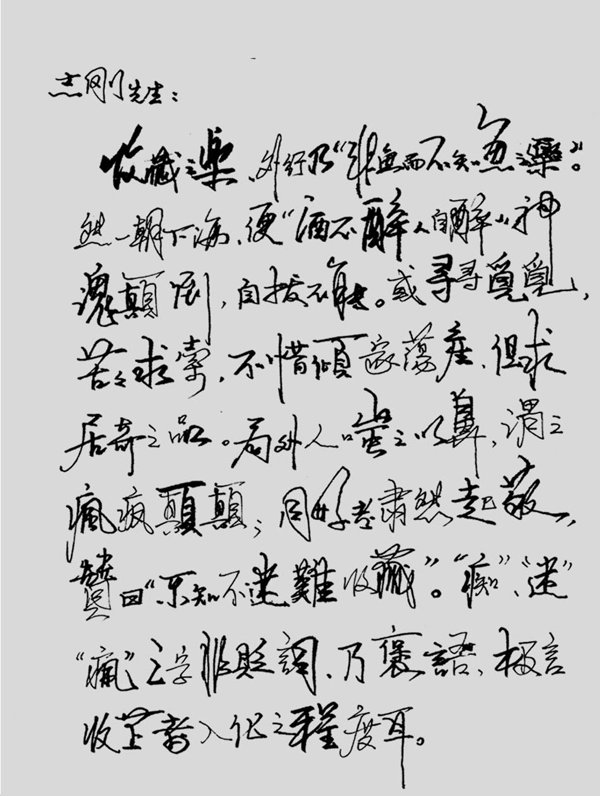 志刚先生：
收藏之樂，外行乃“非魚而不知魚之樂”。
然一朝下海，便“酒不醉人自醉”，神
魂顛倒，自拔不能。或尋尋覓覓，
苦々求索，不惜傾家蕩産，但求
居奇之品。局外人嗤之以鼻，謂之
瘋瘋顛顛；同好者肅然起敬，
贊曰“不知不迷難收藏”。“痴”、“迷”
“瘋”三字非貶詞，乃褒語，極言
收芷者入化之程度耳。